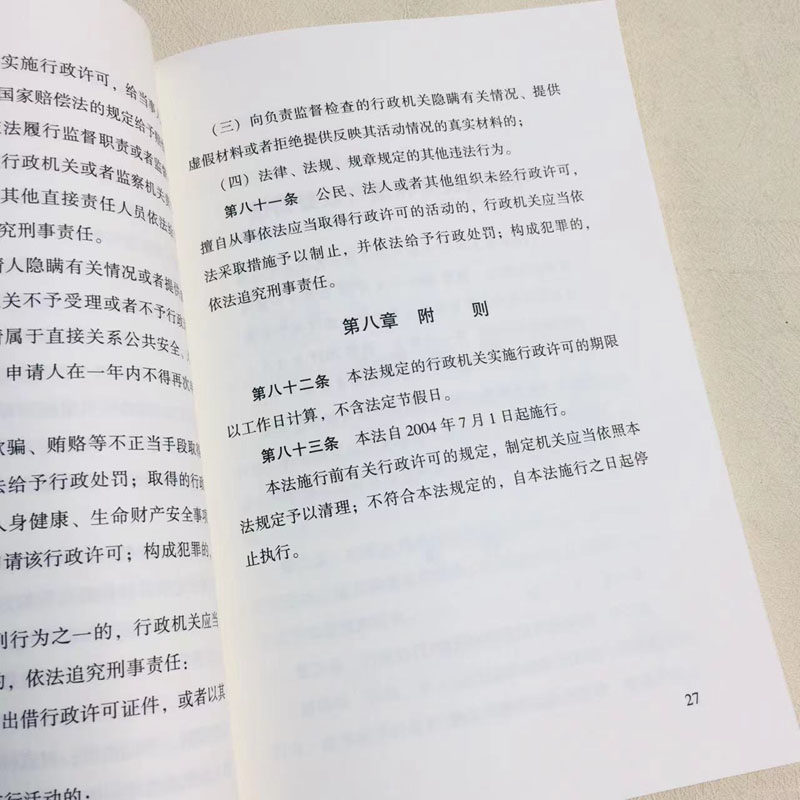 实施行政许可，给当事人
国家赔偿法的规定给予赔
法履行监督职责或者监督
行政机关或者监察机关
其他直接责任人员依法给
究刑事责任。
请人隐瞒有关情况或者提供
关不予受理或者不予行政
请属于直接关系公共安全、
申请人在一年内不得再次
欺骗、贿赂等不正当手段取得
法给予行政处罚；取得的行政
人身健康、生命财产安全事项
申请该行政许可；构成犯罪的，
列行为之一的，行政机关应当
的，依法追究刑事责任：
出借行政许可证件，或者以其
行活动的；
（三）向负责监督检查的行政机关隐瞒有关情况、提供
虚假材料或者拒绝提供反映其活动情况的真实材料的；
（四）法律、法规、规章规定的其他违法行为。
第八十一条　公民、法人或者其他组织未经行政许可，
擅自从事依法应当取得行政许可的活动的，行政机关应当依
法采取措施予以制止，并依法给予行政处罚；构成犯罪的，
依法追究刑事责任。
第八章　附　　则
第八十二条　本法规定的行政机关实施行政许可的期限
以工作日计算，不含法定节假日。
第八十三条　本法自 2004 年 7 月 1 日起施行。
本法施行前有关行政许可的规定，制定机关应当依照本
法规定予以清理；不符合本法规定的，自本法施行之日起停
止执行。
27